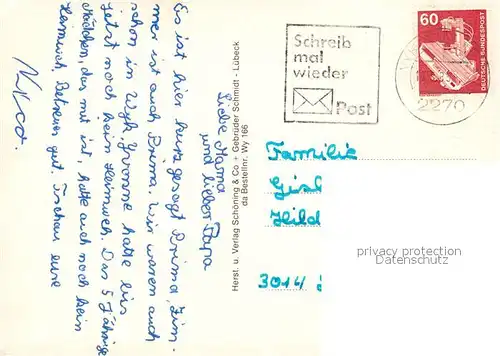 Liebe Mama
und lieber Papa
Es ist hier kurz gesagt Prima, Zim-
mer ist auch Prima. Wir waren auch
schon in Wyk. Yvonne hatte bis
jetzt noch kein Heimweh. Das 5 Jährige
Mädchen, das mit ist, hatte auch noch kein
Heimweh. Betreuer gut. Tschau eure
Herst. u. Verlag Schöning & Co + Gebrüder Schmidt - Lübeck
da Bestellnr. Wy 166
Schreib
mal
wieder
Post
60
DEUTSCHE BUNDESPOST
2270
Familie
Gisl
Hild
3014
privacy protection
Datenschutz